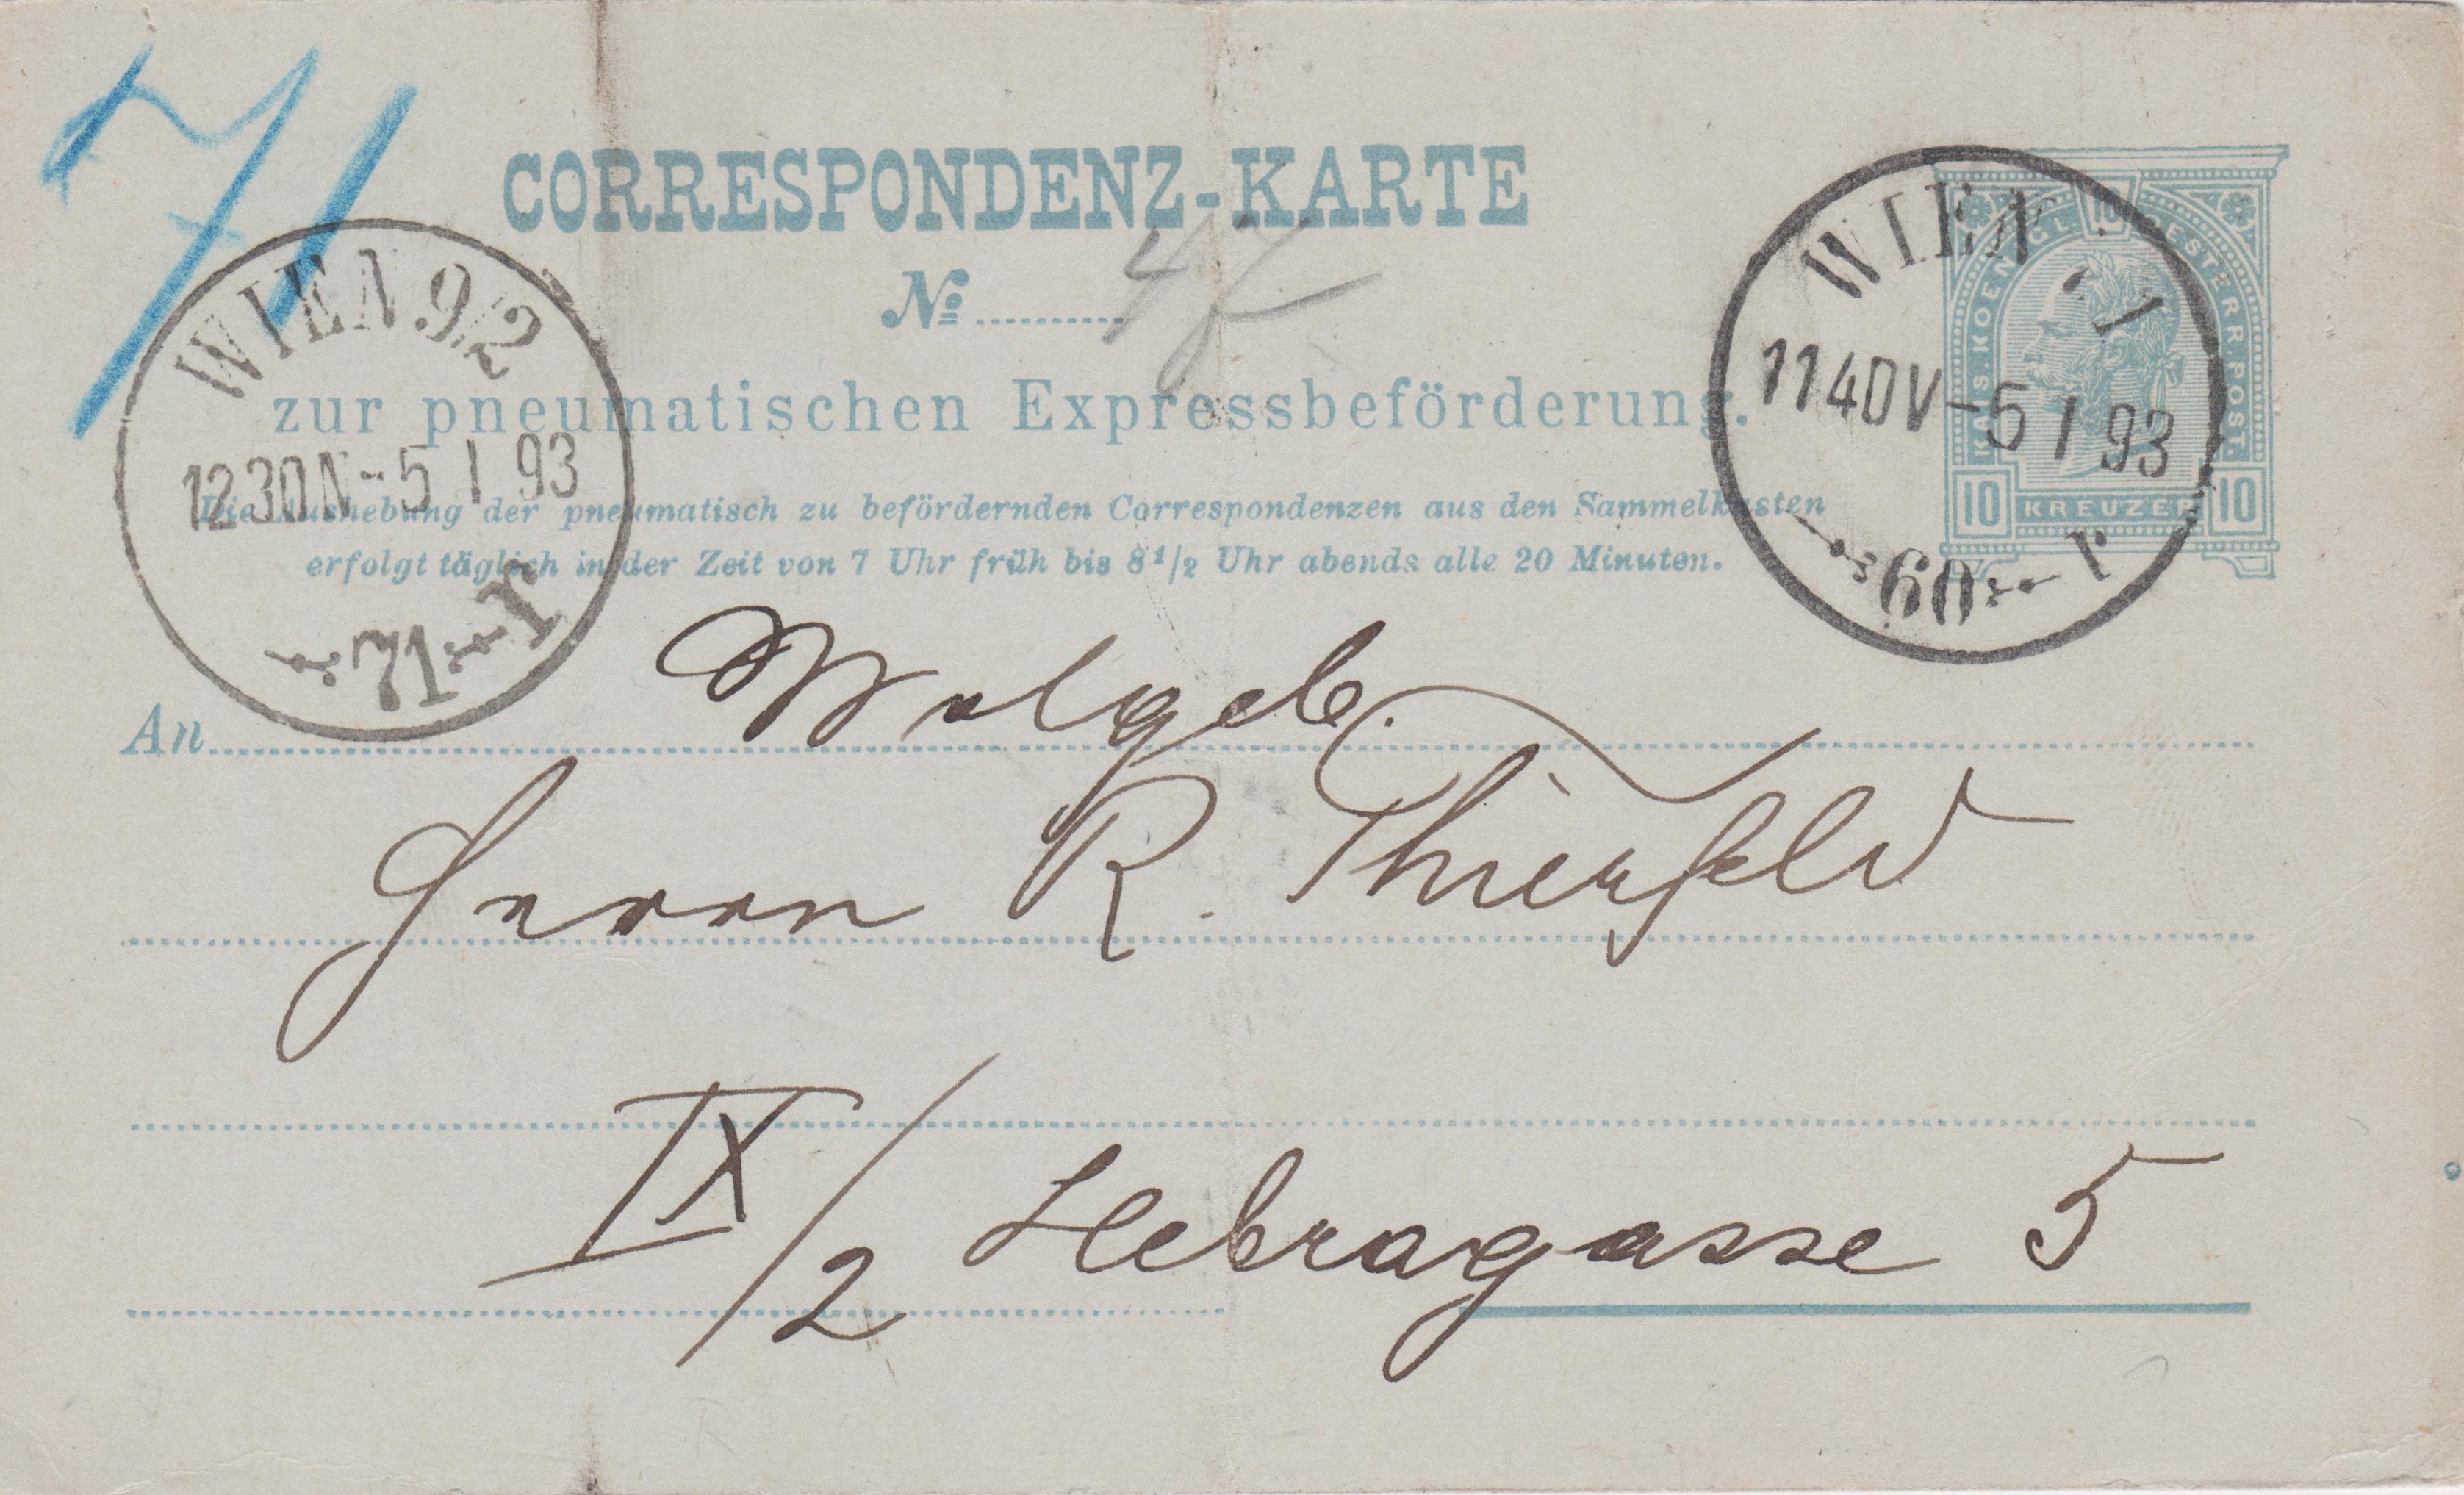 71
CORRESPONDENZ-KARTE
№ 47
zur pneumatischen Expressbeförderung.
Die Aushebung der pneumatisch zu befördernden Correspondenzen aus den Sammelkasten
erfolgt täglich in der Zeit von 7 Uhr früh bis 8 1/2 Uhr abends alle 20 Minuten.
WIEN 9/2
1230N-5 I 93
71
WIEN
1140V-5 I 93
60
KAIS. KOENIGL. OESTERR. POST.
10
10 KREUZER 10
An Wolgeb.
Herrn R. Thierfeld
IX/2 Hebragasse 5